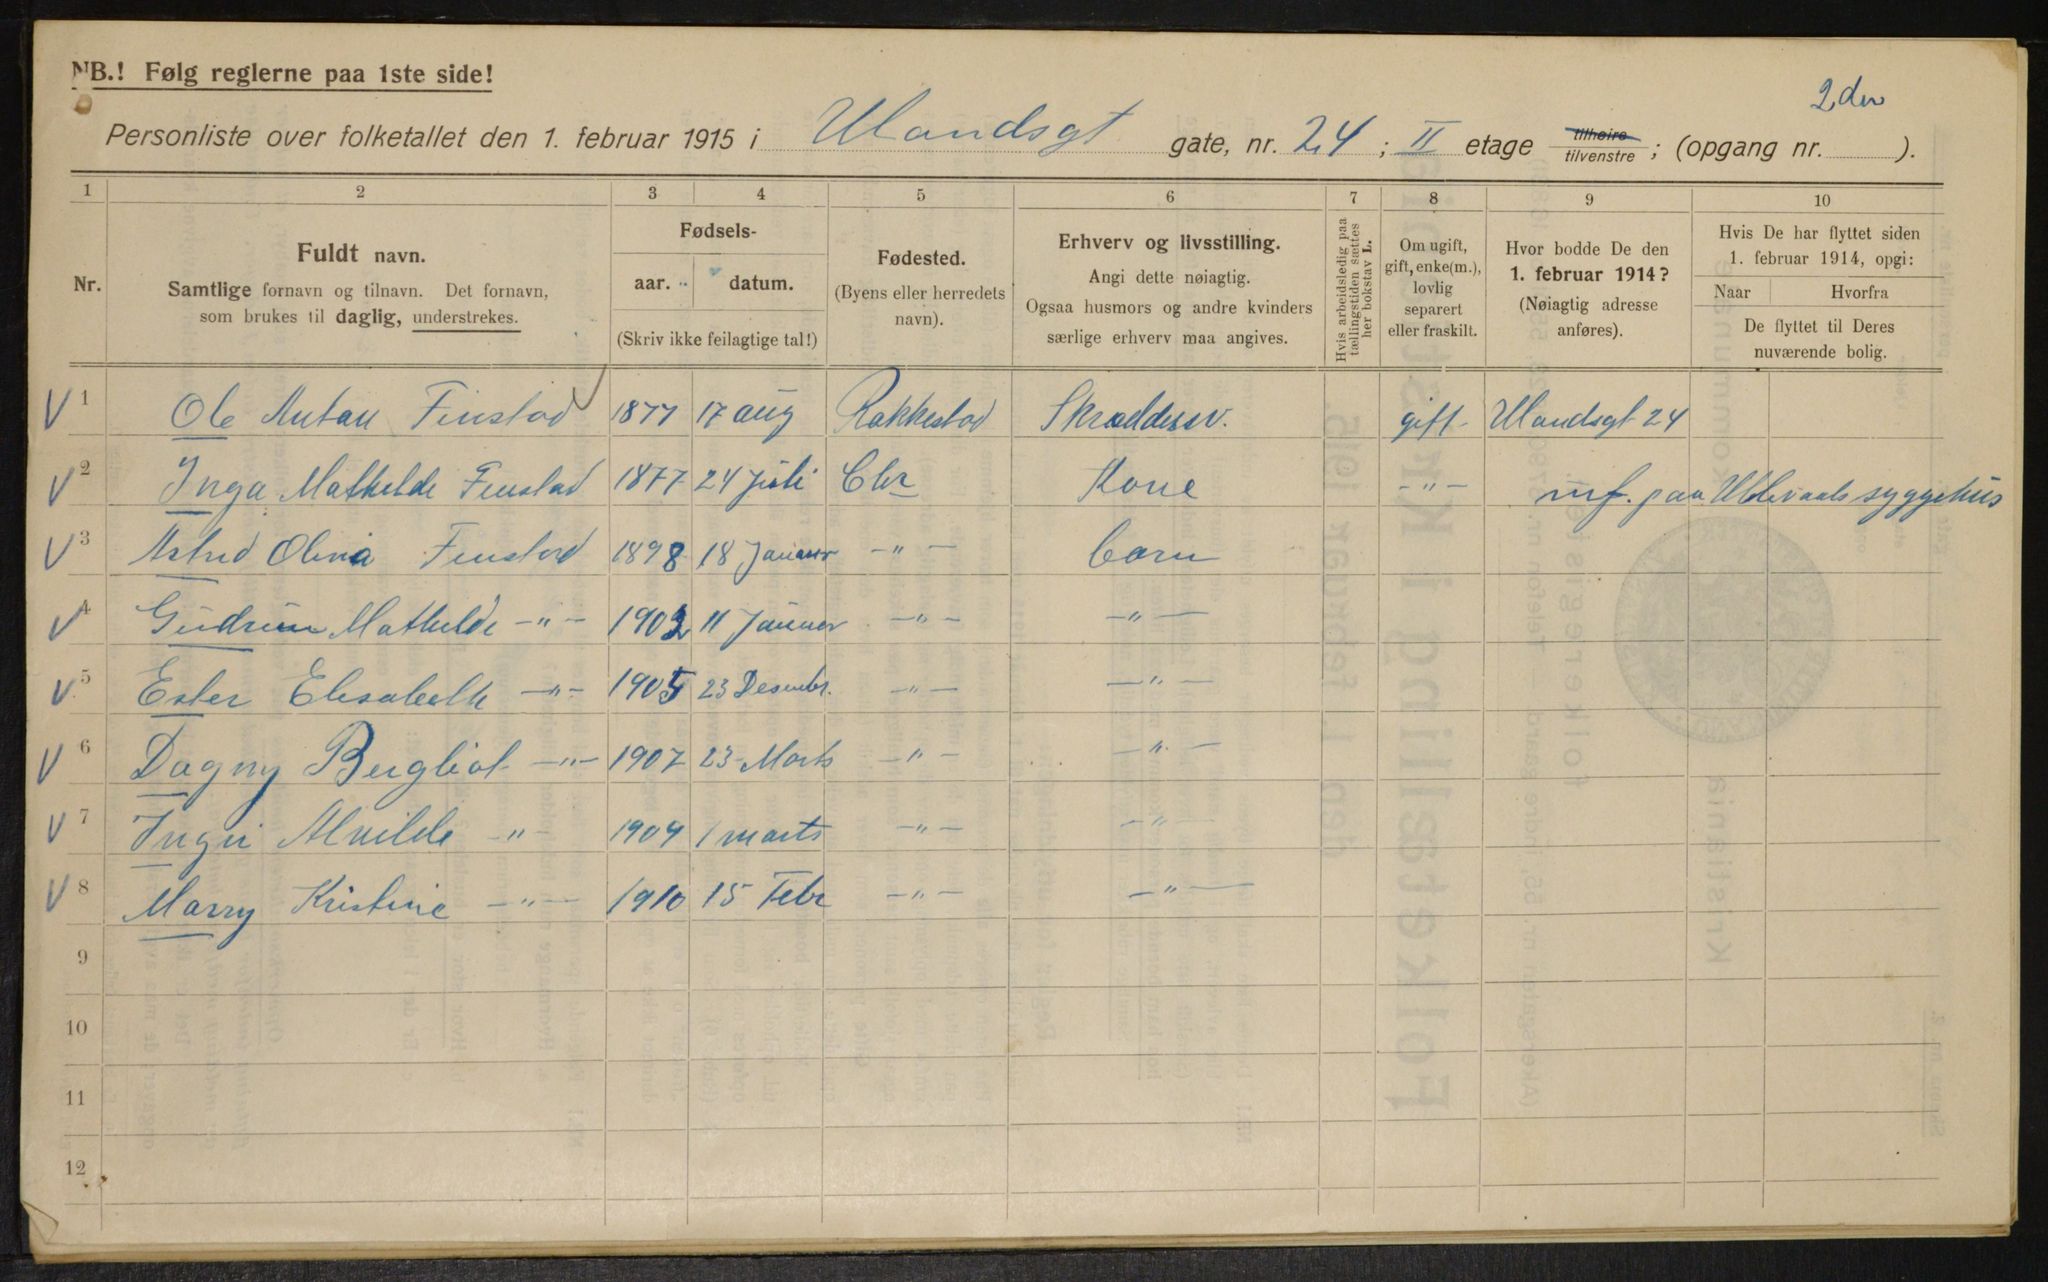 NB.! Følg reglerne paa 1ste side!
2den
Personliste over folketallet den 1. februar 1915 i Ulandsgt gate, nr. 24 ; II etage tilhøire / tilvenstre ; (opgang nr. ).
1 2 3 4 5 6 7 8 9 10
Nr.
Fuldt navn.
Samtlige fornavn og tilnavn. Det fornavn,
som brukes til daglig, understrekes.
Fødsels-
aar. datum.
(Skriv ikke feilagtige tal!)
Fødested.
(Byens eller herredets
navn).
Erhverv og livsstilling.
Angi dette nøiagtig.
Ogsaa husmors og andre kvinders
særlige erhverv maa angives.
Hvis arbeidsledig paa
tællingstiden sættes
her bokstav L.
Om ugift,
gift, enke(m.),
lovlig
separert
eller fraskilt.
Hvor bodde De den
1. februar 1914?
(Nøiagtig adresse
anføres).
Hvis De har flyttet siden
1. februar 1914, opgi:
Naar Hvorfra
De flyttet til Deres
nuværende bolig.
V 1 Ole Antan Finstad 1877 17 aug Rakkestad Skræddersv. gift Ulandsgt 24
V 2 Inga Mathilde Finstad 1877 24 Juli Chr Kone -"- mf. paa Ullevaals syggehus
V 3 Astrid Olivia Finstad 1898 18 Januar -"- barn
V 4 Gudrun Mathilde -"- 1902 11 Januar -"- -"-
V 5 Ester Elisabeth -"- 1905 23 Desembr. -"- -"-
V 6 Dagny Bergliot -"- 1907 23 Marts -"- -"-
V 7 Ingri Alvilde -"- 1909 1 marts -"- -"-
V 8 Marry Kristine -"- 1910 15 Febr -"- -"-
9
10
11
12